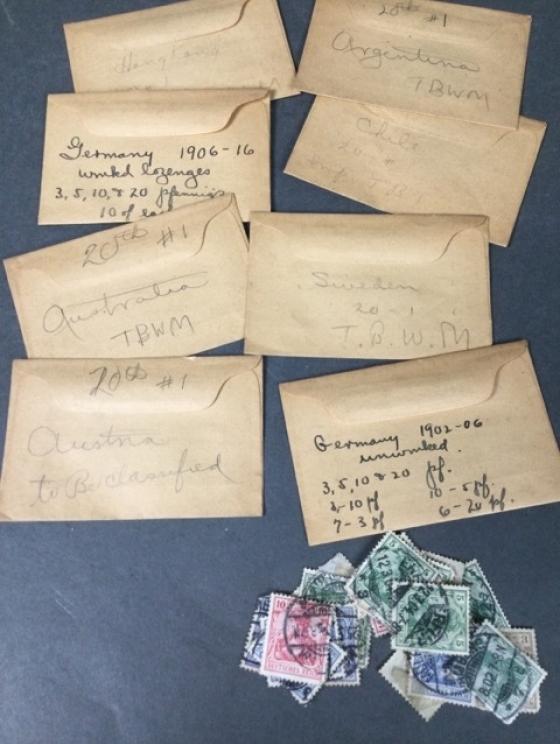 Hong Kong
20th #1
Argentina
TBWM
Germany 1906-16
wmkd lozenges
3, 5, 10, & 20 pfennigs
10 of each
Chile
20 #
20th #1
Australia
TBWM
Sweden
20 - 1
T.B.W.M
20th #1
Austria
to Be classified
Germany 1902-06
unwmked.
3, 5, 10 & 20 pf.
10 - 5 pf.
10 pf
6 - 20 pf.
7 - 3 pf
10
DEUTSCHES REICH
5